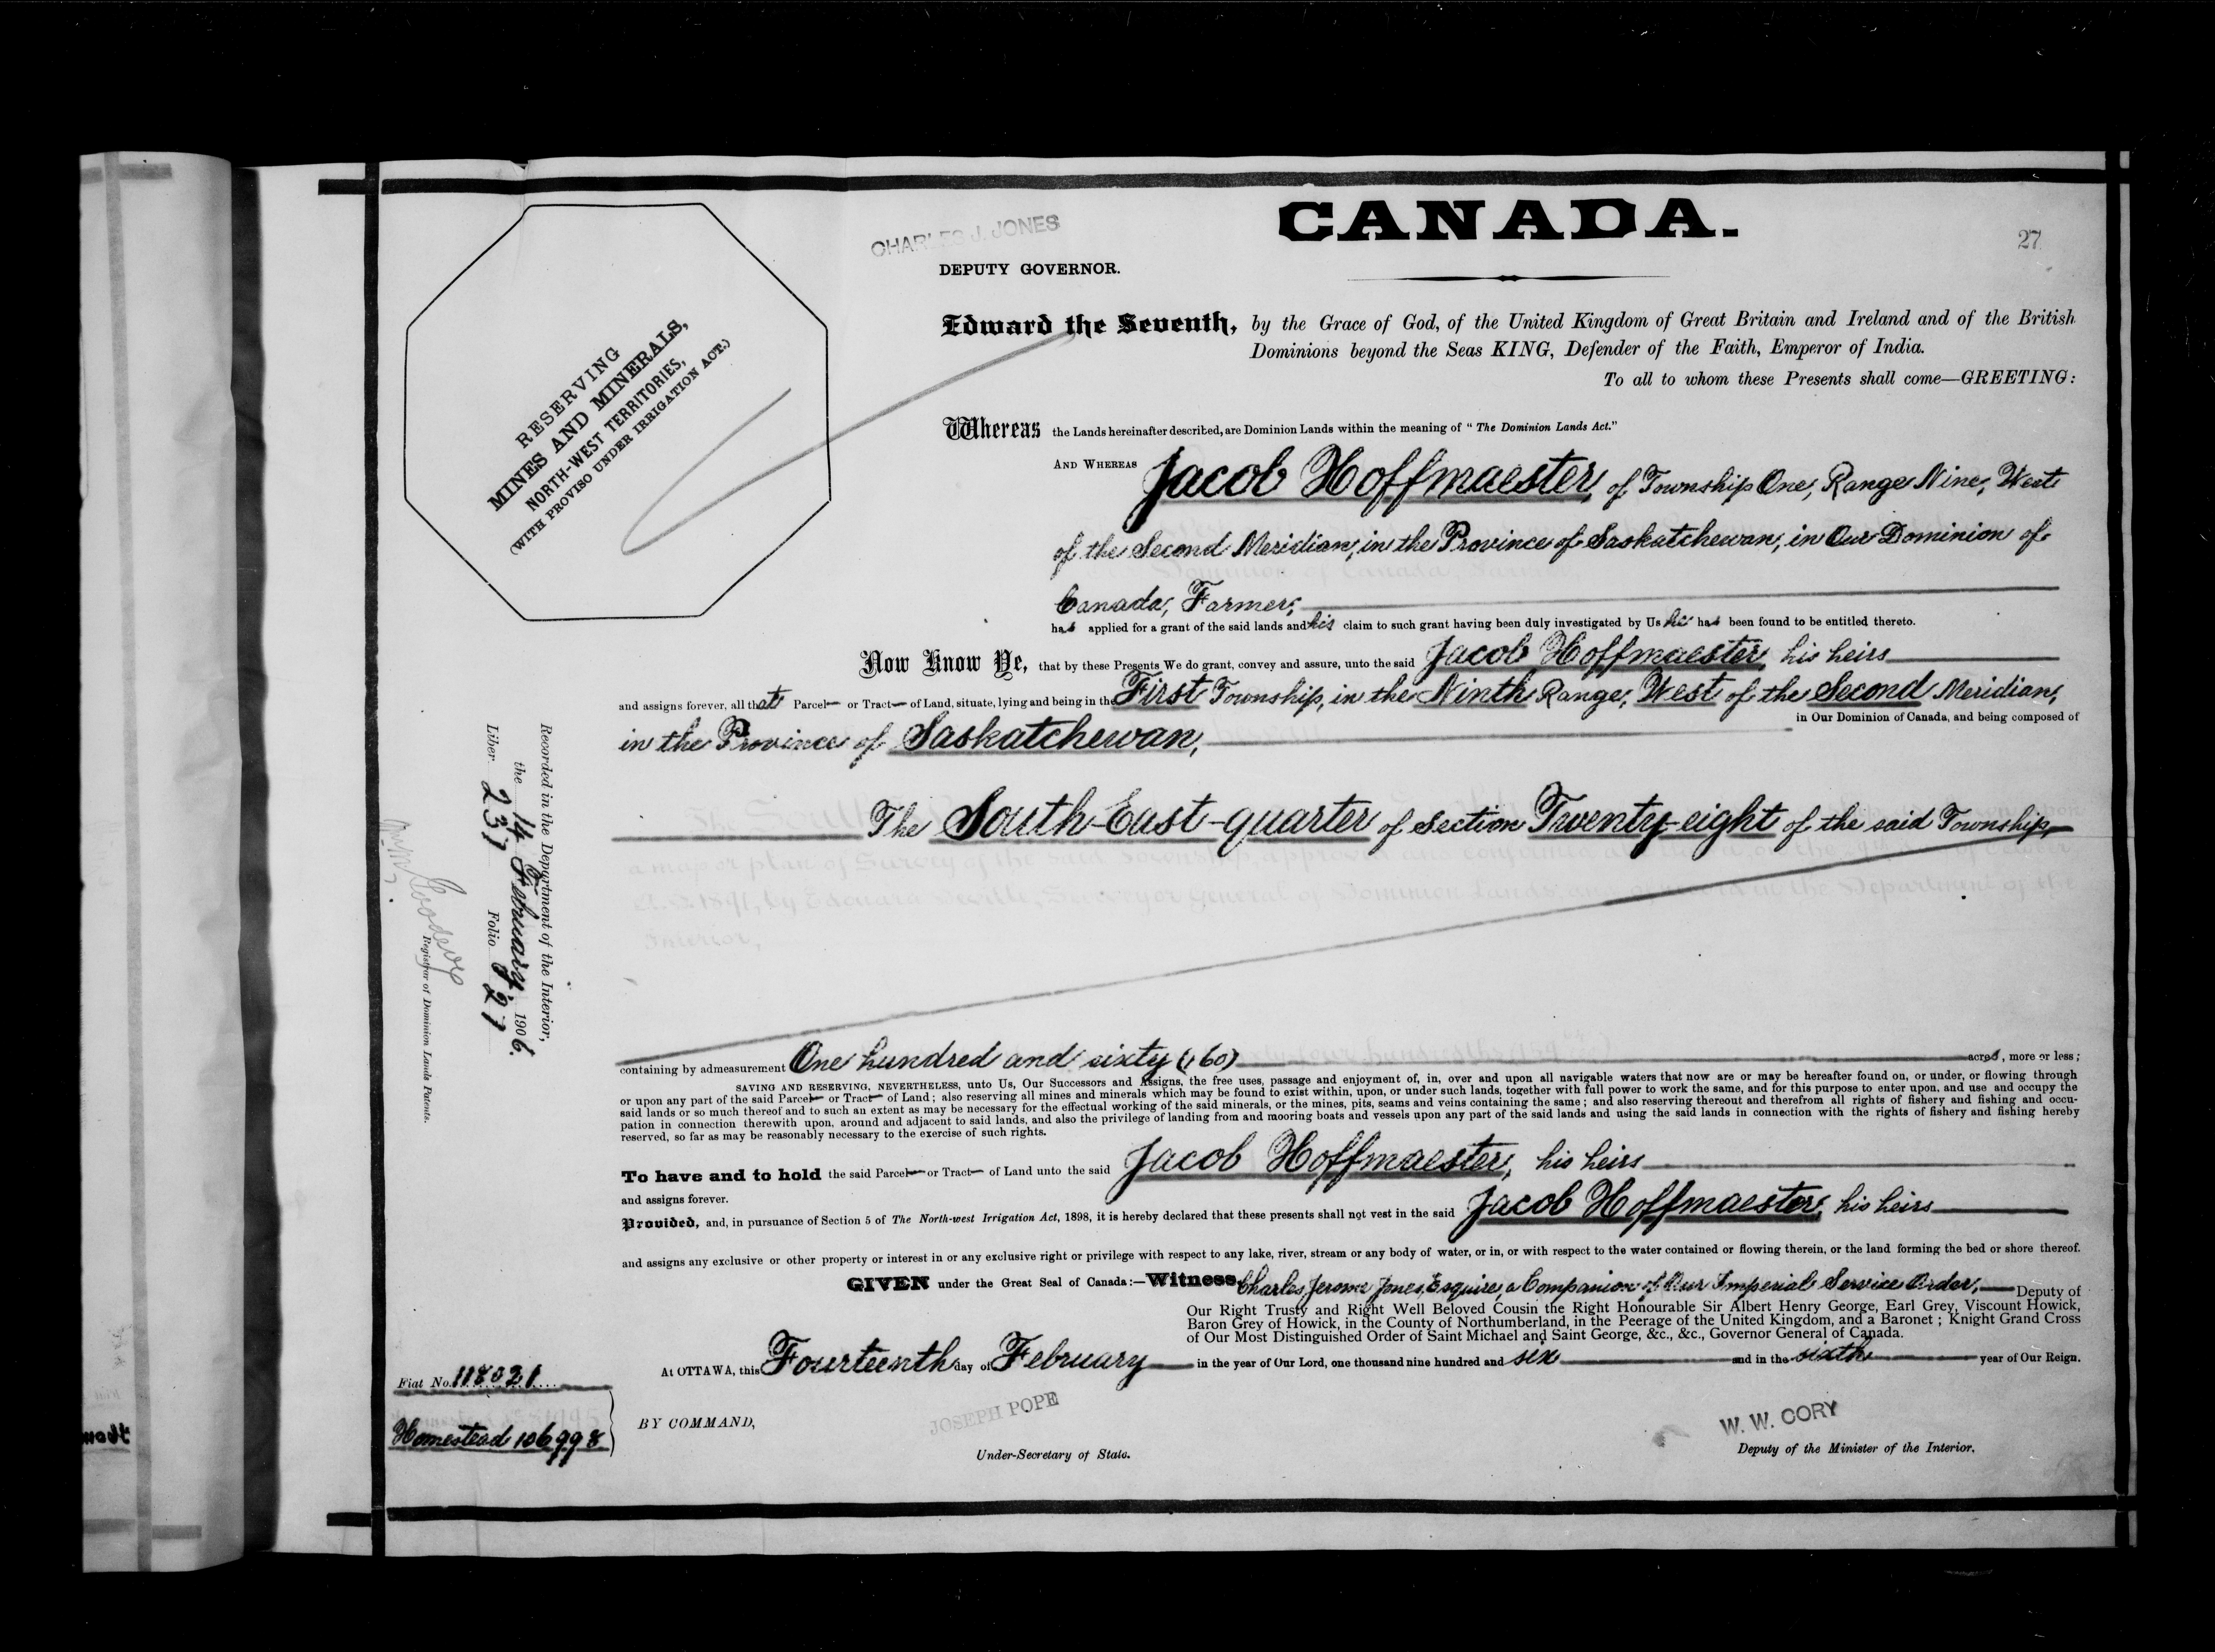 CANADA.
27
CHARLES J. JONES
DEPUTY GOVERNOR.
RESERVING
MINES AND MINERALS,
NORTH-WEST TERRITORIES,
(WITH PROVISO UNDER IRRIGATION ACT.)
Edward the Seventh, by the Grace of God, of the United Kingdom of Great Britain and Ireland and of the British
Dominions beyond the Seas KING, Defender of the Faith, Emperor of India.
To all to whom these Presents shall come—GREETING:
Whereas the Lands hereinafter described, are Dominion Lands within the meaning of "The Dominion Lands Act."
AND WHEREAS Jacob Hoffmaester, of Township One, Range Nine, West
of the Second Meridian, in the Province of Saskatchewan, in Our Dominion of
Canada, Farmer,
has applied for a grant of the said lands and his claim to such grant having been duly investigated by Us he has been found to be entitled thereto.
Now Know Ye, that by these Presents We do grant, convey and assure, unto the said Jacob Hoffmaester, his heirs
and assigns forever, all that Parcel or Tract of Land, situate, lying and being in the First Township, in the Ninth Range, West of the Second Meridian,
in the Province of Saskatchewan, in Our Dominion of Canada, and being composed of
The South-East-quarter of Section Twenty-eight of the said Township,
containing by admeasurement One hundred and sixty (160) acres, more or less;
SAVING AND RESERVING, NEVERTHELESS, unto Us, Our Successors and Assigns, the free uses, passage and enjoyment of, in, over and upon all navigable waters that now are or may be hereafter found on, or under, or flowing through
or upon any part of the said Parcel or Tract of Land; also reserving all mines and minerals which may be found to exist within, upon, or under such lands, together with full power to work the same, and for this purpose to enter upon, and use and occupy the
said lands or so much thereof and to such an extent as may be necessary for the effectual working of the said minerals, or the mines, pits, seams and veins containing the same; and also reserving thereout and therefrom all rights of fishery and fishing and occu-
pation in connection therewith upon, around and adjacent to said lands, and also the privilege of landing from and mooring boats and vessels upon any part of the said lands and using the said lands in connection with the rights of fishery and fishing hereby
reserved, so far as may be reasonably necessary to the exercise of such rights.
To have and to hold the said Parcel or Tract of Land unto the said Jacob Hoffmaester, his heirs
and assigns forever.
Provided, and, in pursuance of Section 5 of The North-west Irrigation Act, 1898, it is hereby declared that these presents shall not vest in the said Jacob Hoffmaester, his heirs
and assigns any exclusive or other property or interest in or any exclusive right or privilege with respect to any lake, river, stream or any body of water, or in, or with respect to the water contained or flowing therein, or the land forming the bed or shore thereof.
GIVEN under the Great Seal of Canada:—Witness, Charles Jerome Jones, Esquire, a Companion of Our Imperial Service Order, Deputy of
Our Right Trusty and Right Well Beloved Cousin the Right Honourable Sir Albert Henry George, Earl Grey, Viscount Howick,
Baron Grey of Howick, in the County of Northumberland, in the Peerage of the United Kingdom, and a Baronet; Knight Grand Cross
of Our Most Distinguished Order of Saint Michael and Saint George, &c., &c., Governor General of Canada.
At OTTAWA, this Fourteenth day of February in the year of Our Lord, one thousand nine hundred and six and in the sixth year of Our Reign.
BY COMMAND,
JOSEPH POPE
Under-Secretary of State.
W. W. CORY
Deputy of the Minister of the Interior.
Fiat No. 118021
Homestead 106998
Recorded in the Department of the Interior,
the 14 February, 1906.
Liber 237 Folio 27
Registrar of Dominion Lands Patents.